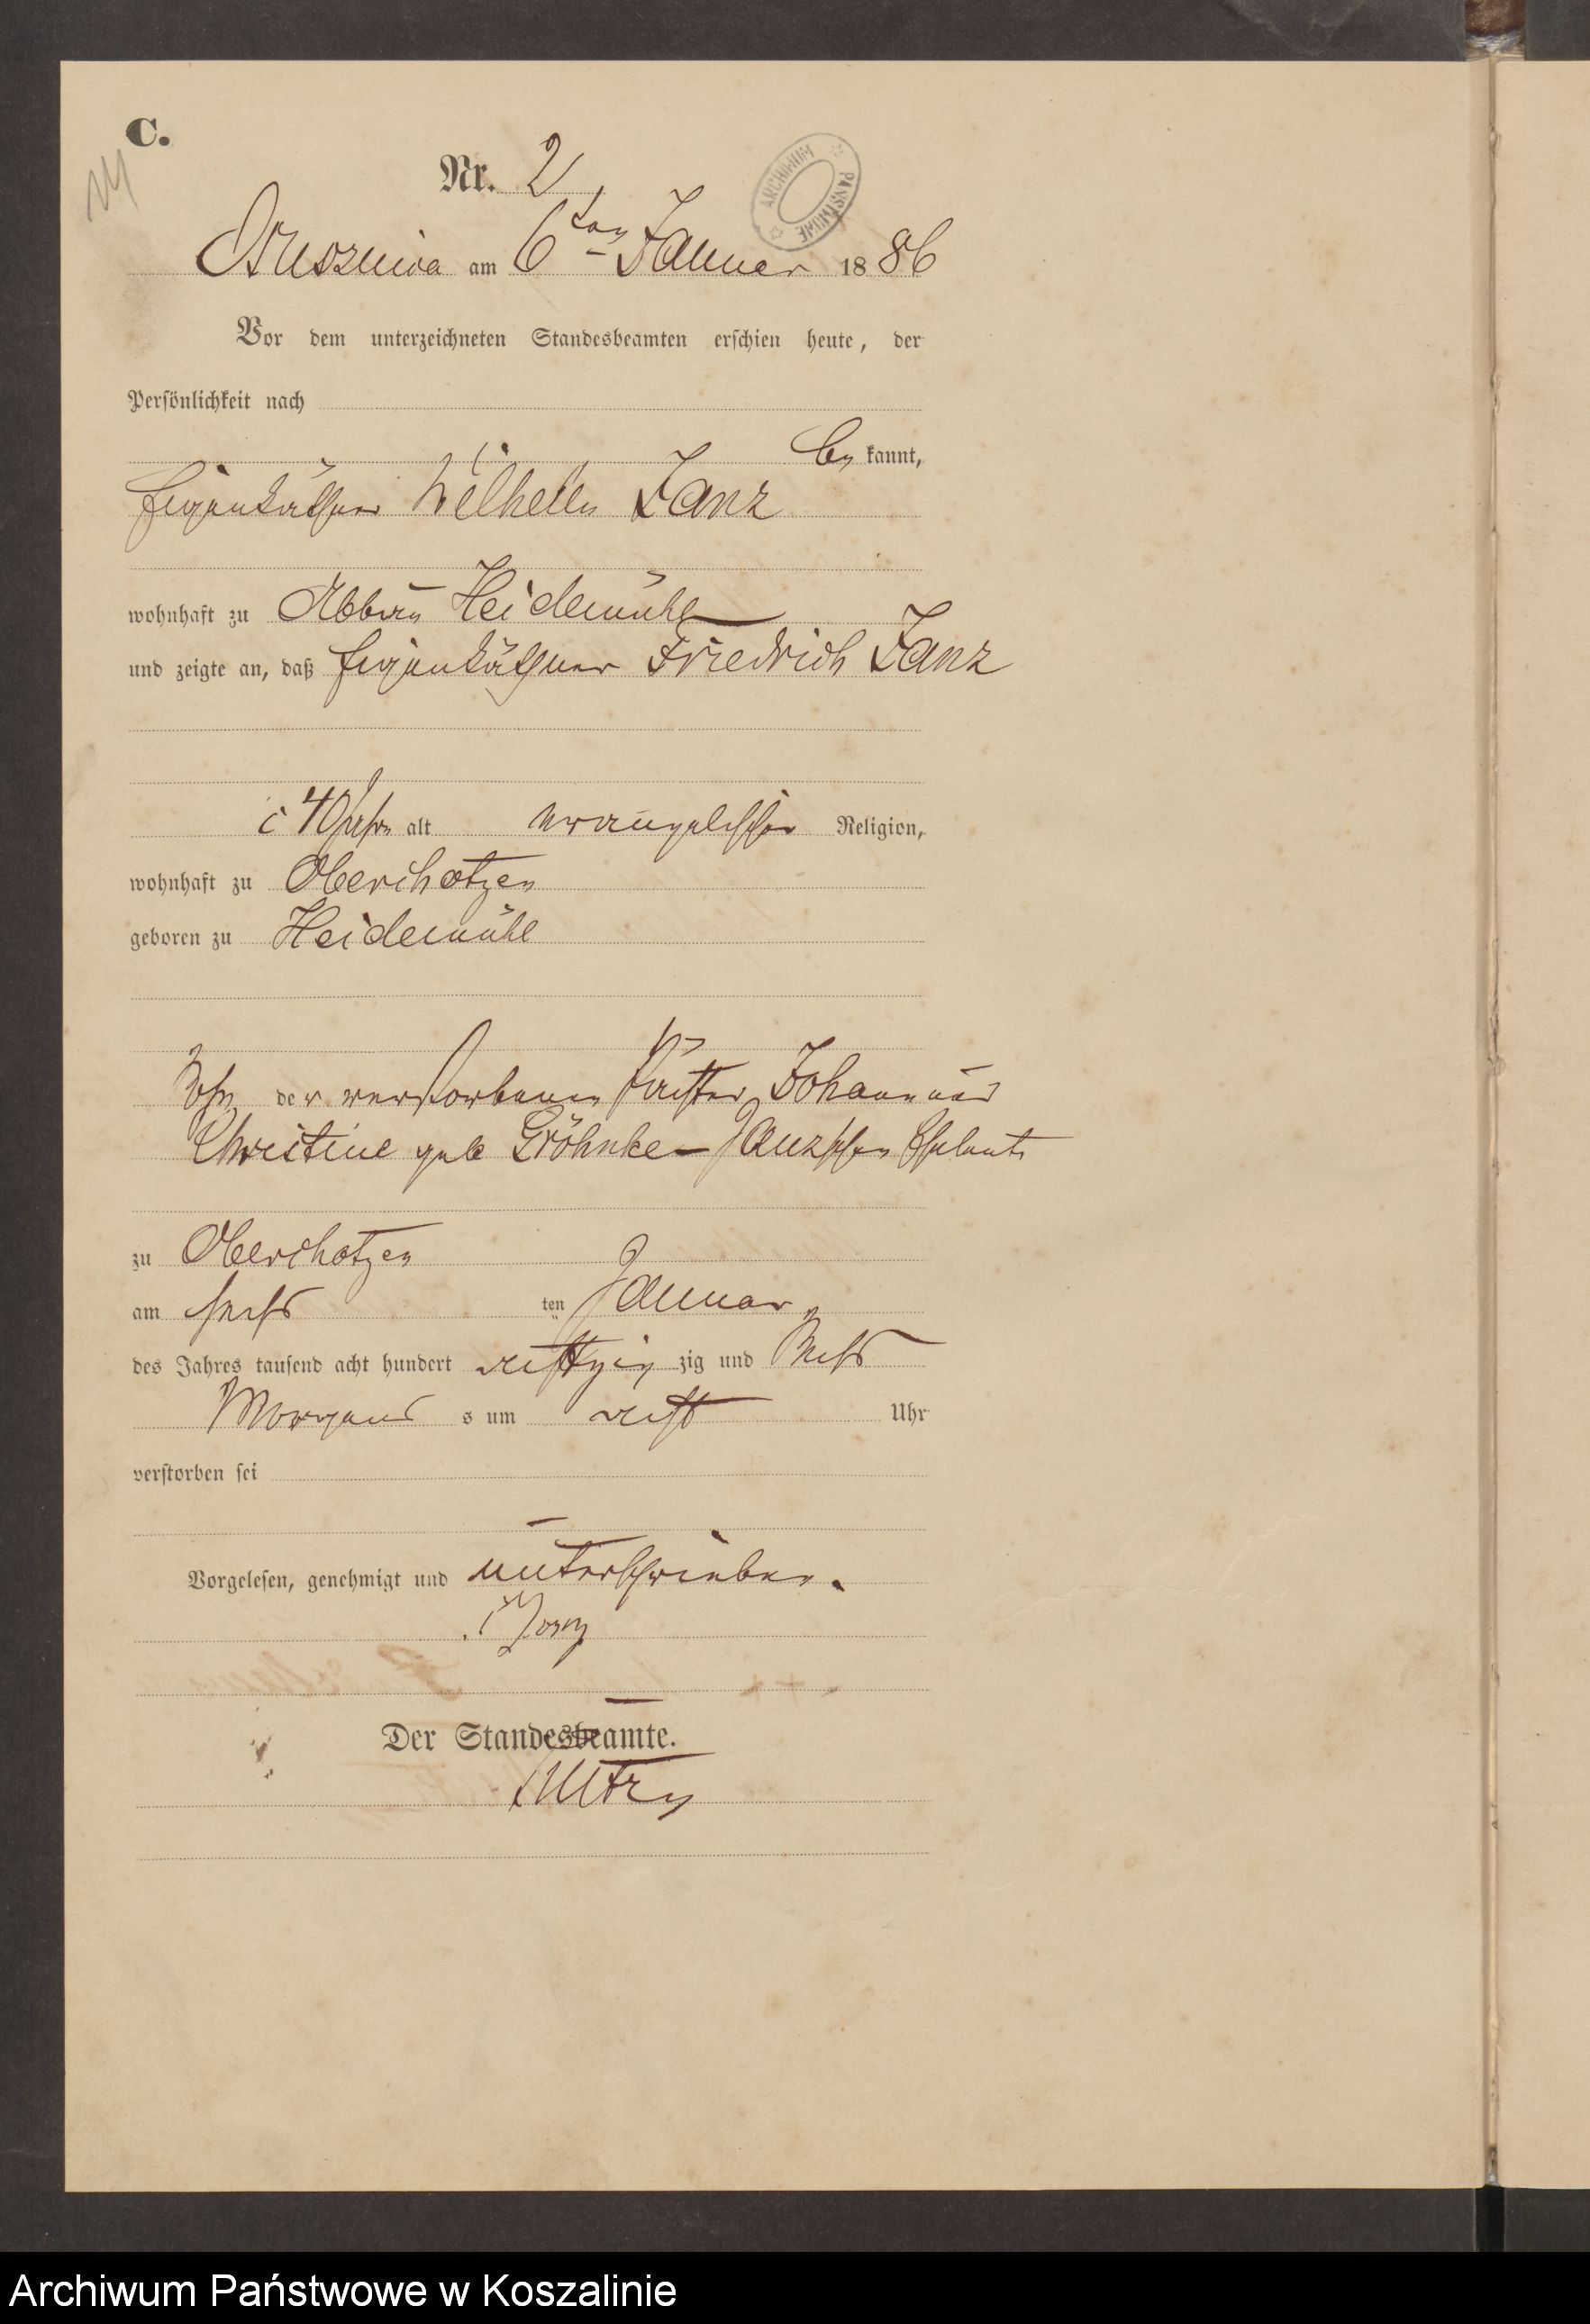 C.
14
Nr. 2
ARCHIWUM PAŃSTWOWE
am 6ten Januar 1886
Vor dem unterzeichneten Standesbeamten erschien heute, der
Persönlichkeit nach
be kannt,
Eigenkäthner Wilhelm Janz
wohnhaft zu Abbau Heidemühl
und zeigte an, daß Eigenkäthner Friedrich Janz
40 Jahre alt evangelischer Religion,
wohnhaft zu Oberchotzen
geboren zu Heidemühl
Sohn der verstorbenen Johann und
Christine geb Gröhnke - Janzschen Eheleute
zu Oberchotzen
am sechs ten Januar
des Jahres tausend acht hundert achtzig zig und sechs
Morgens s um acht Uhr
verstorben sei
Vorgelesen, genehmigt und unterschrieben.
Der Standesbeamte.
Archiwum Państwowe w Koszalinie